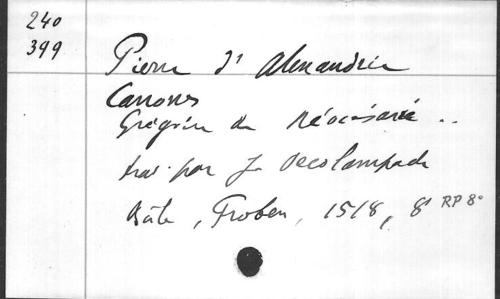 240
399
Pierre d'Alexandrie
Canones
Grégoire de Néocésarée ..
trad. par J. Oecolampade
Bâle, Froben, 1518, 8° RP 8°